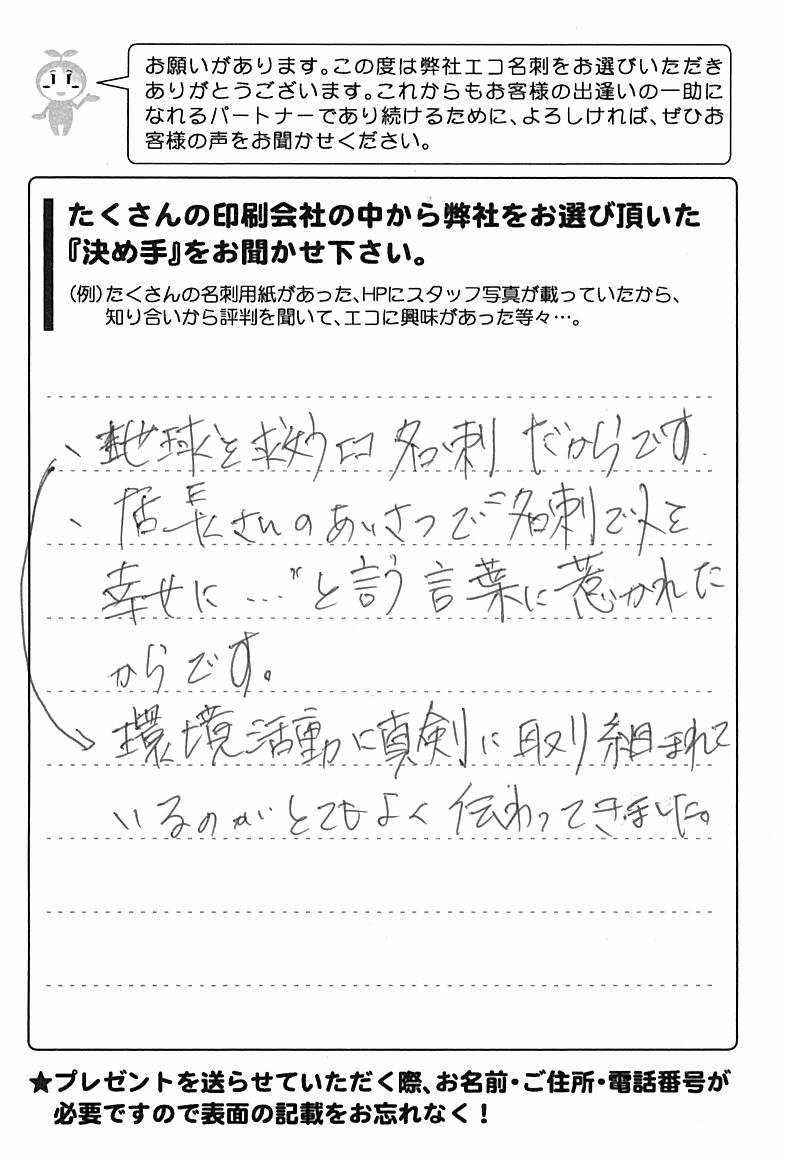 お願いがあります。この度は弊社エコ名刺をお選びいただき
ありがとうございます。これからもお客様の出逢いの一助に
なれるパートナーであり続けるために、よろしければ、ぜひお
客様の声をお聞かせください。
たくさんの印刷会社の中から弊社をお選び頂いた
『決め手』をお聞かせ下さい。
（例）たくさんの名刺用紙があった、HPにスタッフ写真が載っていたから、
知り合いから評判を聞いて、エコに興味があった等々…。
、地球を救うエコ名刺だからです
、店長さんのあいさつで“名刺で人を
幸せに…”と言う言葉に惹かれた
からです。
環境活動に真剣に取り組まれて
いるのがとてもよく伝わってきました。
★プレゼントを送らせていただく際、お名前・ご住所・電話番号が
必要ですので表面の記載をお忘れなく！